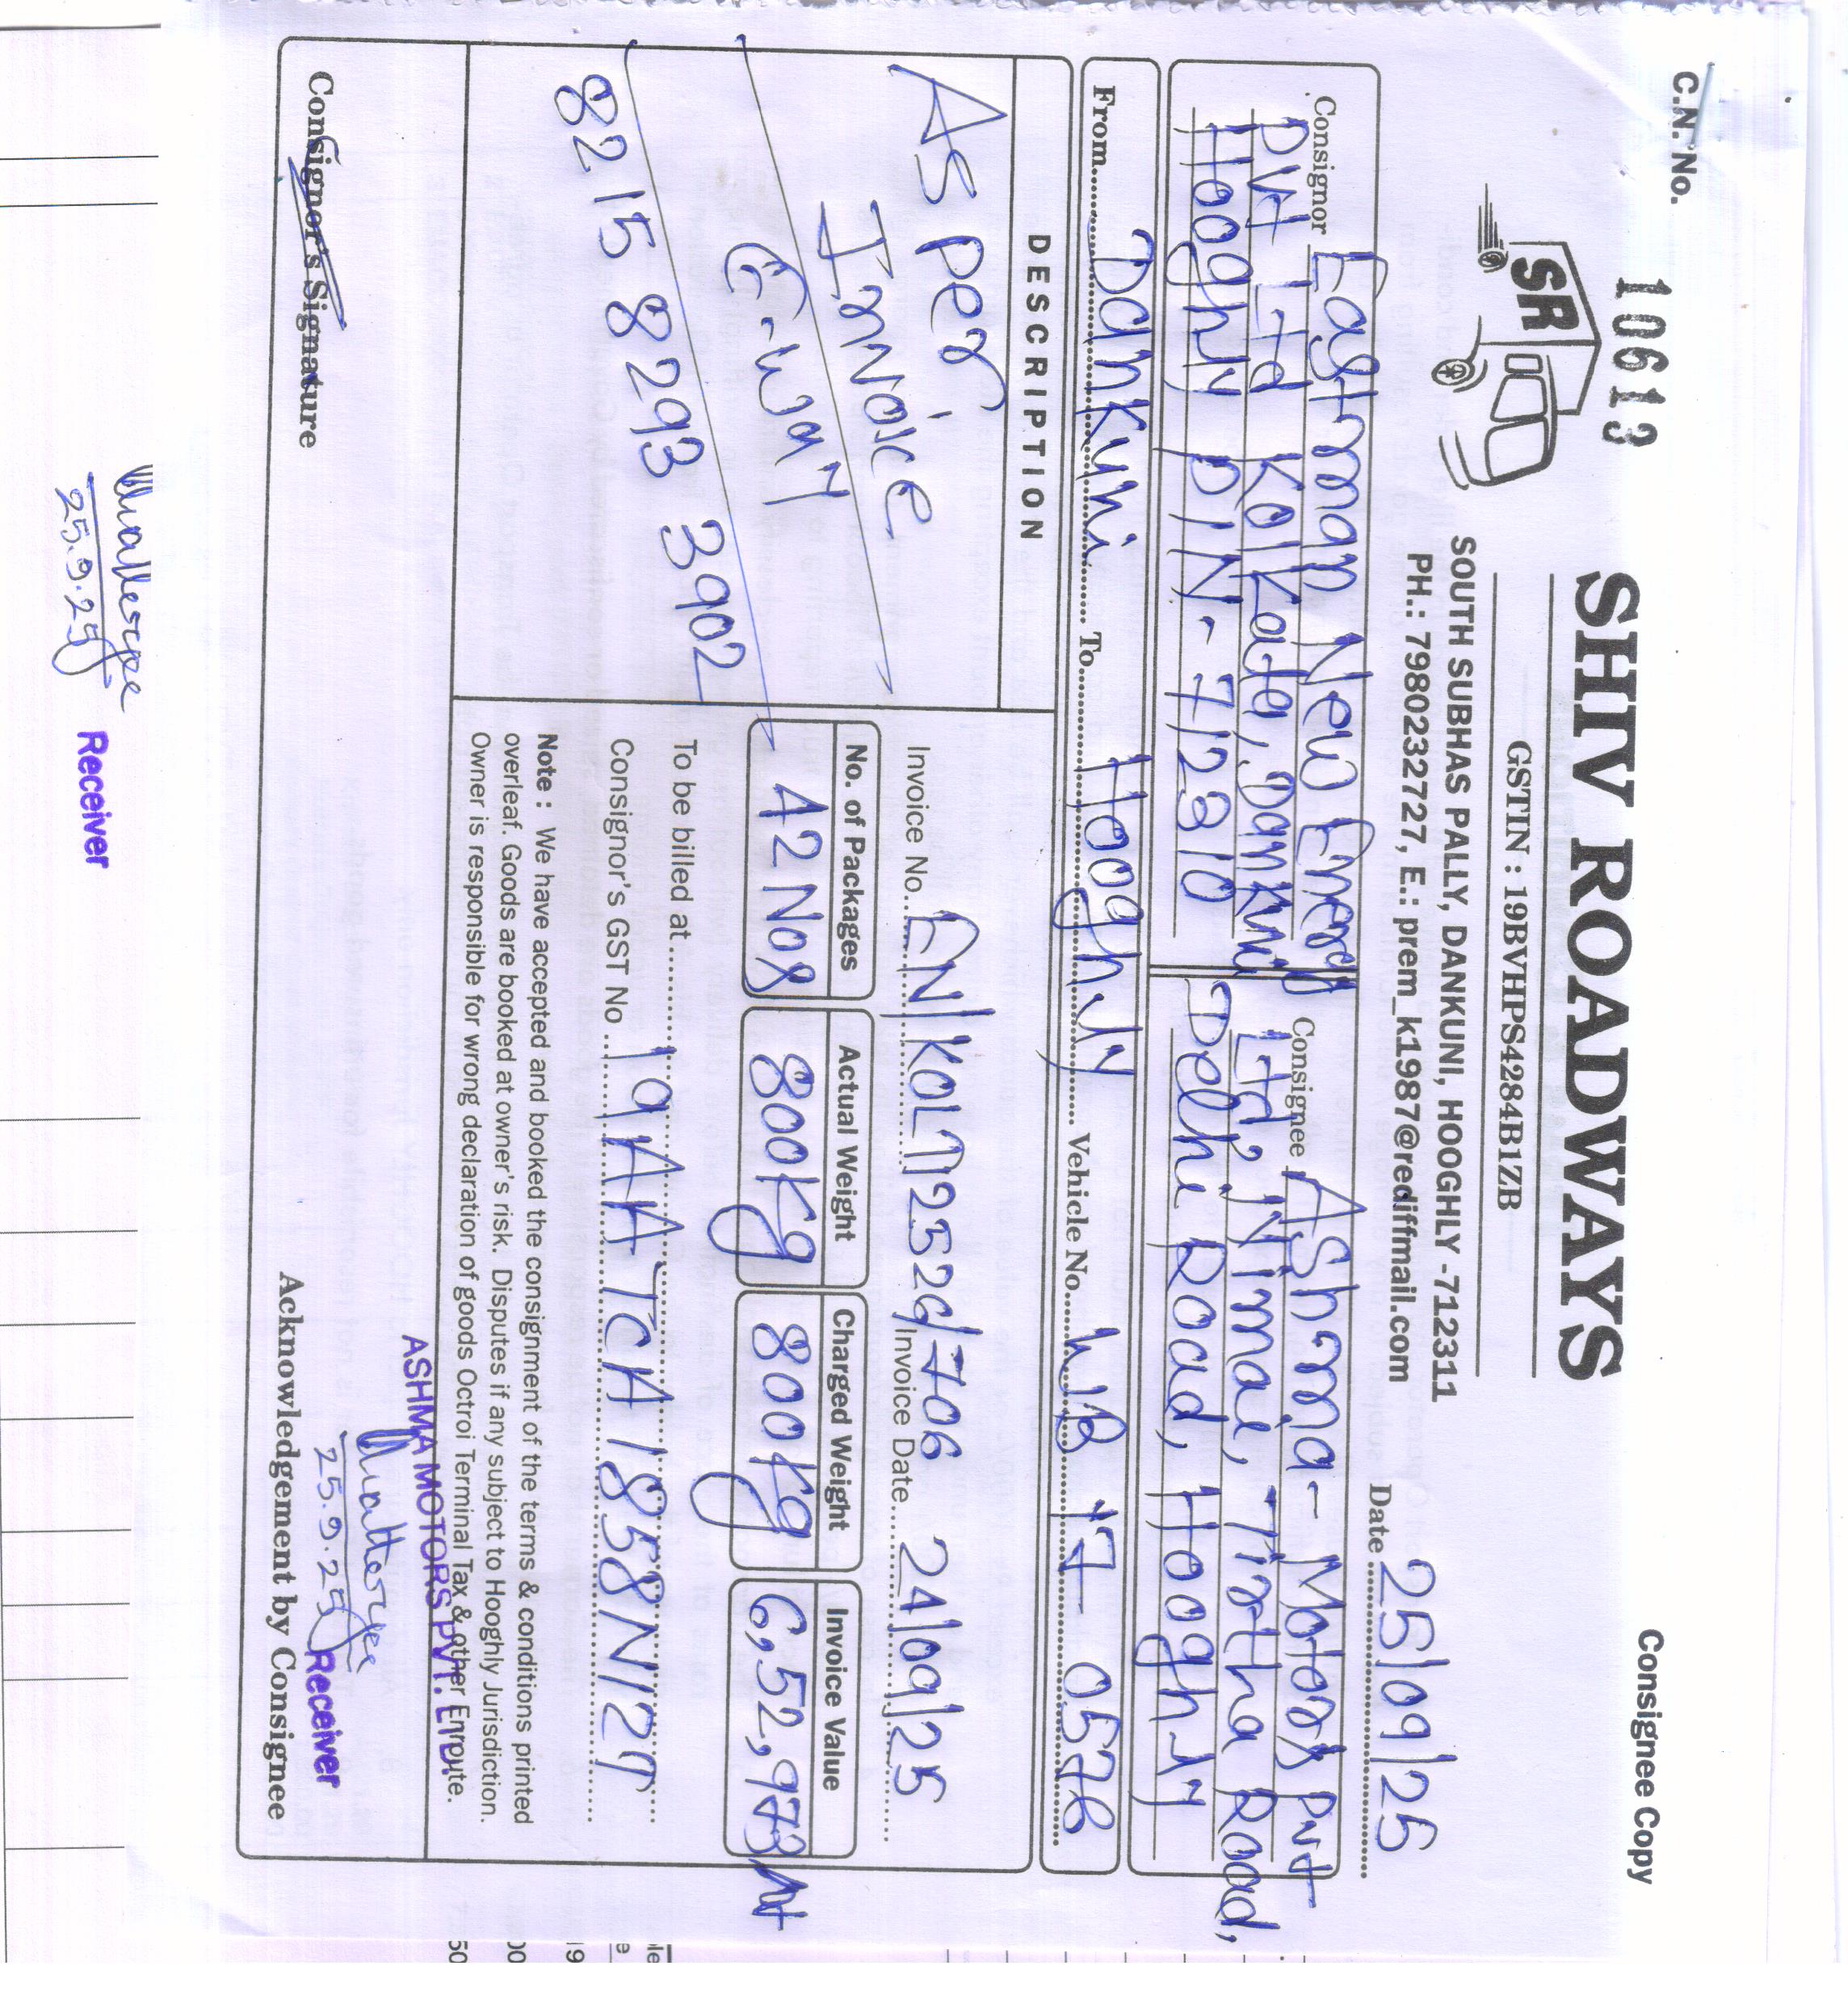 C.N. No. 10613
Consignee Copy
SR
SHIV ROADWAYS
GSTIN : 19BVHPS4284B1ZB
SOUTH SUBHAS PALLY, DANKUNI, HOOGHLY -712311
PH.: 7980232727, E.: prem_k1987@rediffmail.com
Date 25/09/25
Consignor Eastman New Energy
Pvt Ltd Kolkata, Dankuni
Hooghly PIN- 712310
Consignee Ashma- Motors Pvt
Ltd, Nimai, Tirtha Road,
Delhi Road, Hooghly
From Dankuni To Hooghly Vehicle No. WB 17- 0578
DESCRIPTION
As per
Invoice
E-way
8215 8293 3902
Invoice No. EN/KOLT/2526/706 Invoice Date 24/09/25
No. of Packages Actual Weight Charged Weight Invoice Value
42 Nos 800 Kg 800 Kg 6,52,973
To be billed at
Consignor's GST No 19AATCA1858N1ZT
Note : We have accepted and booked the consignment of the terms & conditions printed
overleaf. Goods are booked at owner's risk. Disputes if any subject to Hooghly Jurisdiction.
Owner is responsible for wrong declaration of goods Octroi Terminal Tax & other Enroute.
ASHMA MOTORS PVT. LTD.
25.9.25
Receiver
Consignor's Signature
Acknowledgement by Consignee
25.9.25
Receiver